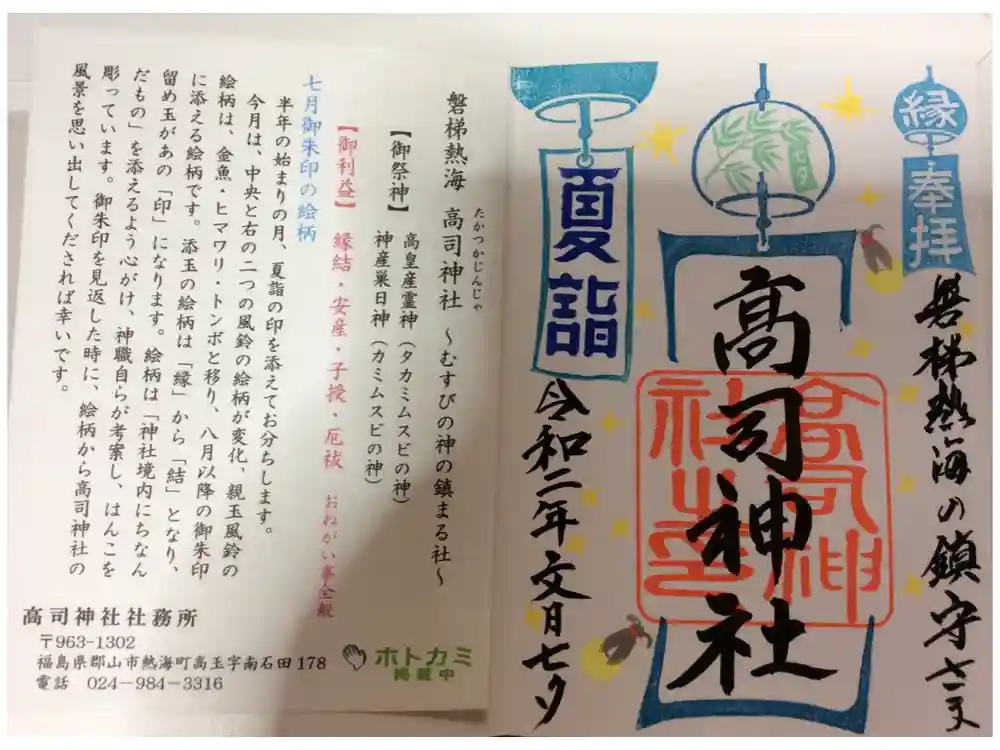 磐梯熱海 高司神社 ～むすびの神の鎮まる社～
たかつかじんじゃ
【御祭神】 高皇産霊神（タカミムスビの神）
神産巣日神（カミムスビの神）
【御利益】 縁結・安産・子授・厄祓 おねがい事全般
七月御朱印の絵柄
半年の始まりの月、夏詣の印を添えてお分ちします。
今月は、中央と右の二つの風鈴の絵柄が変化、親玉風鈴の
絵柄は、金魚・ヒマワリ・トンボと移り、八月以降の御朱印
に添える絵柄です。添玉の絵柄は「縁」から「結」となり、
留め玉があの「印」になります。絵柄は「神社境内にちなん
だもの」を添えるよう心がけ、神職自らが考案し、はんこを
彫っています。御朱印を見返した時に、絵柄から高司神社の
風景を思い出してくだされば幸いです。
高司神社社務所
〒963-1302
福島県郡山市熱海町高玉字南石田178
電話 024-984-3316
ホトカミ
掲載中
縁
奉拝
磐梯熱海の鎮守さま
七夕
髙司神社
高司神
社之印
夏詣
令和二年文月七夕